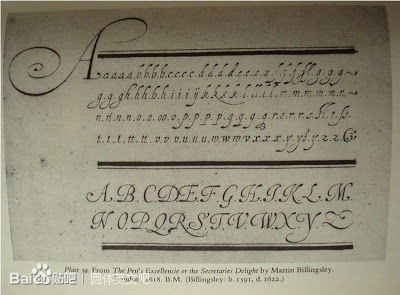 A a.a.a.a.b.b.b.b.c.c.c.c.d.d.d.d.e.e.s.
g.g.g.h.h.h.b.h.i.i.i.ij.k.k.k.k.l.l.l.l.m.m.m.m.n.
n.n.n.n.o.o.o.o.p.p.p.p.q.q.q.q.r.r.r.r.s.
t.t.t.t.v.v.u.u.u.w.w.v.x.x.x.y.y.z.z.
A.B.C.D.E.F.G.H.I.K.L.M.
N.O.P.Q.R.S.T.V.W.X.Y.Z
Plate 39. From The Pen's Excellencie or the Secretaries Delight by Martin Billingsley.
London, 1618. B.M. (Billingsley: b. 1591, d. 1622.)
Baidu贴吧 | 圆体英吧